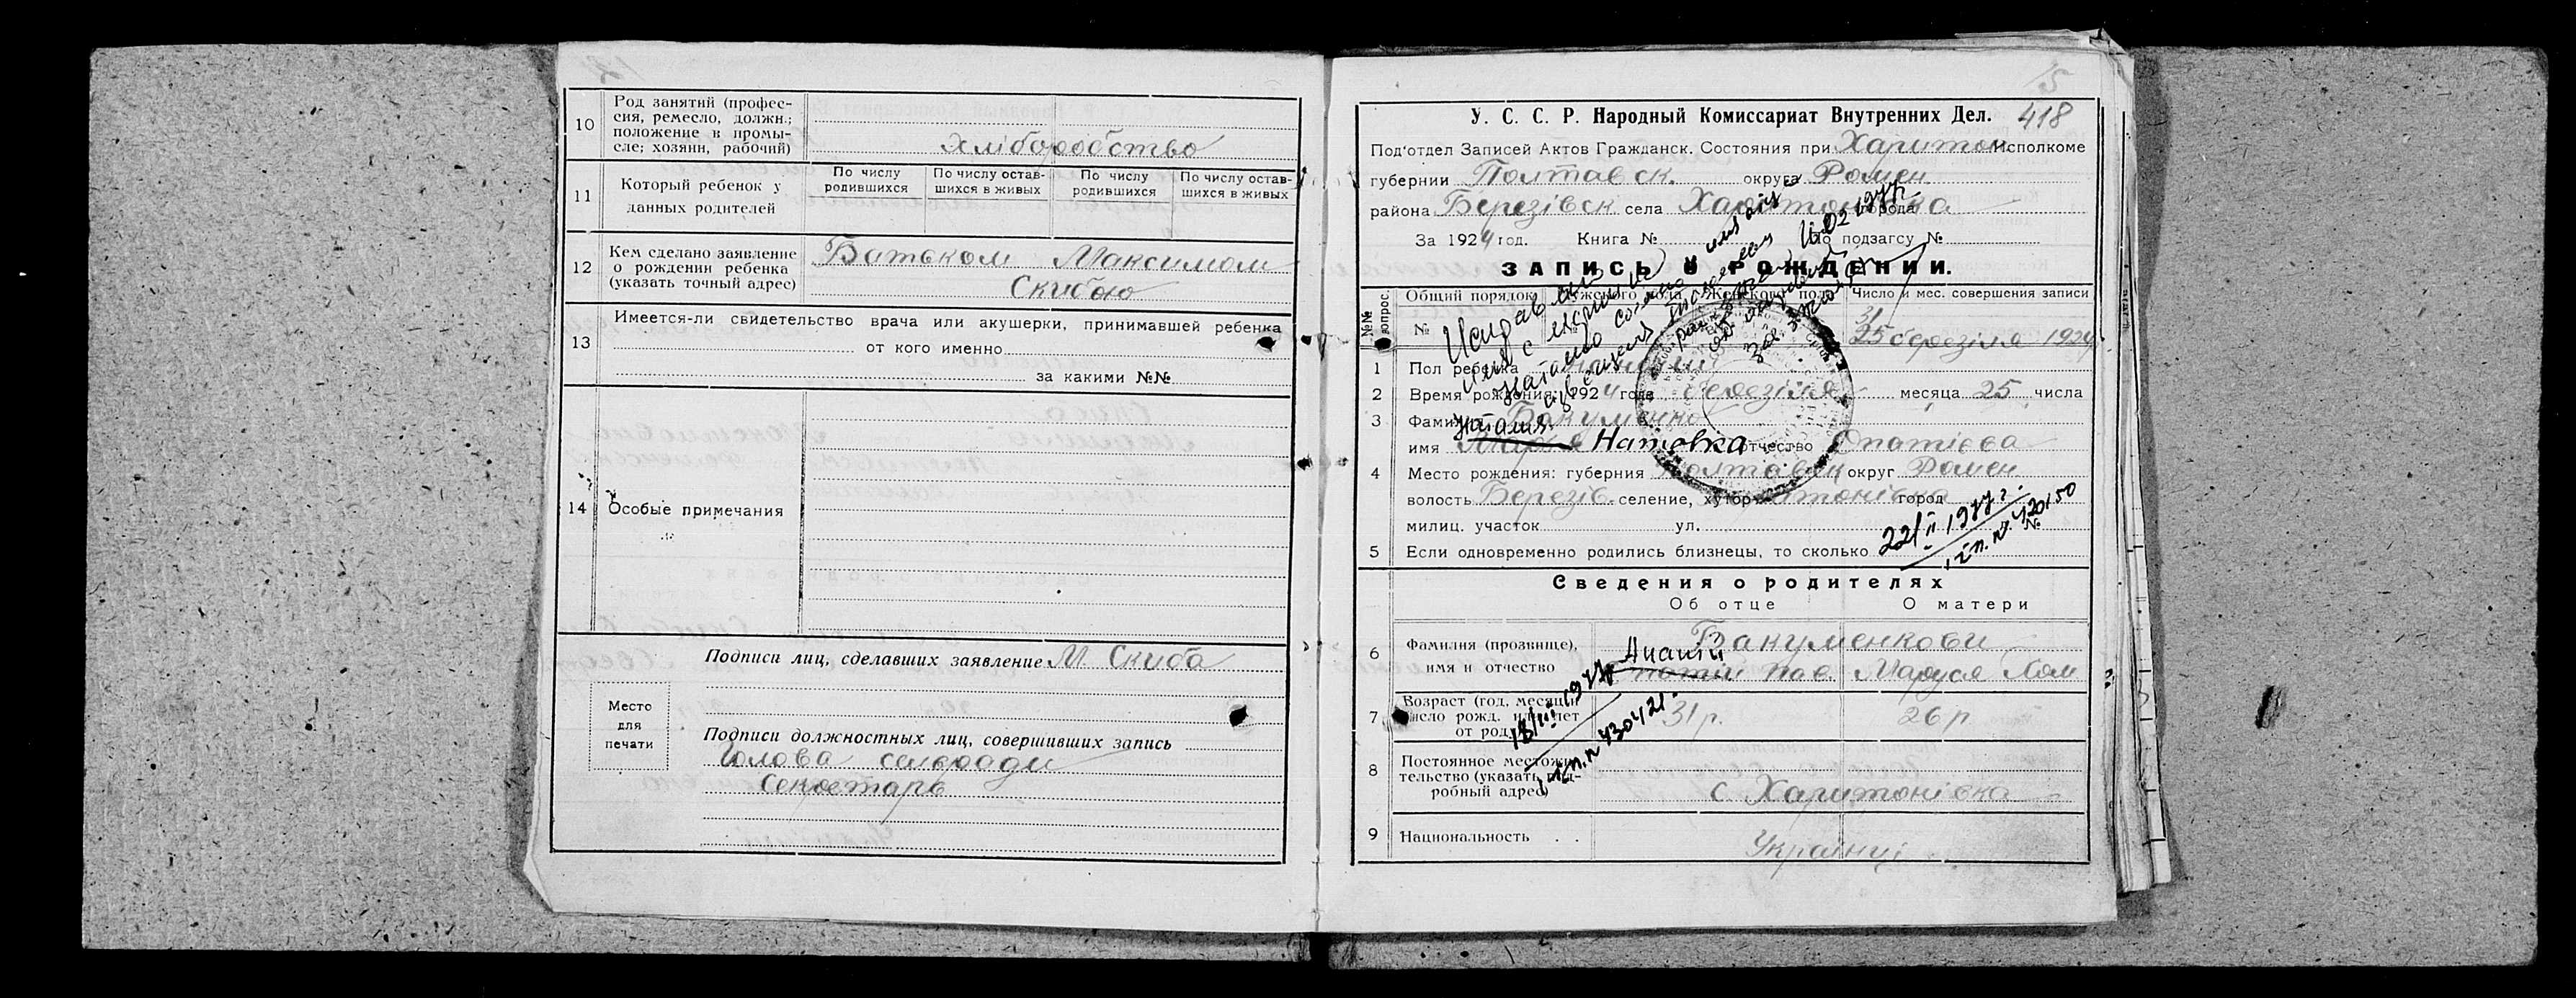 10 Род занятий (профес-
сия, ремесло, должн.;
положение в промы-
сле; хозяин, рабочий)
хліборобство
11 Который ребенок у
данных родителей
По числу родившихся
По числу остав-шихся в живых
По числу родившихся
По числу остав-шихся в живых
12 Кем сделано заявление
о рождении ребенка
(указать точный адрес)
Батьком Максимом
Скибою
13 Имеется-ли свидетельство врача или акушерки, принимавшей ребенка
от кого именно
за какими №№
14 Особые примечания
Подписи лиц, сделавших заявление М Скиба
Место
для
печати
Подписи должностных лиц, совершивших запись
Голова сельради
Секретарь
15
418
У. С. С. Р. Народный Комиссариат Внутренних Дел.
Под'отдел Записей Актов Гражданск. Состояния при Харитон. Исполкоме
губернии Полтавск. округа Ромен
района Березівск села Харитонівка города
За 1924 год. Книга № По подзагсу №
ЗАПИСЬ О РОЖДЕНИИ.
№№ вопрос.
Общий порядок Мужского пола Женского пола Число и мес. совершения записи
№ №
31
25 березіля 1924
1 Пол ребенка
2 Время рождения: 1924 года березіля месяца 25 числа
3 Фамилия Бакуменко
Наталия
имя Мария Наталка отчество Опатієва
4 Место рождения: губерния Полтавск округ Ромен
волость Березів. селение, хутор город
милиц. участок ул. №
5 Если одновременно родились близнецы, то сколько
22/II 1977 г.
Сведения о родителях
Об отце О матери
6 Фамилия (прозвище),
имя и отчество
Бакуменкови
Ананій
Пав. Маруся
7 Возраст (год, месяц и
число рожд. или лет
от род.)
31 р. 26 р
18/III 1977
8 Постоянное местожи-
тельство (указать под-
робный адрес)
с. Харитонівка
9 Национальность . .
Українці